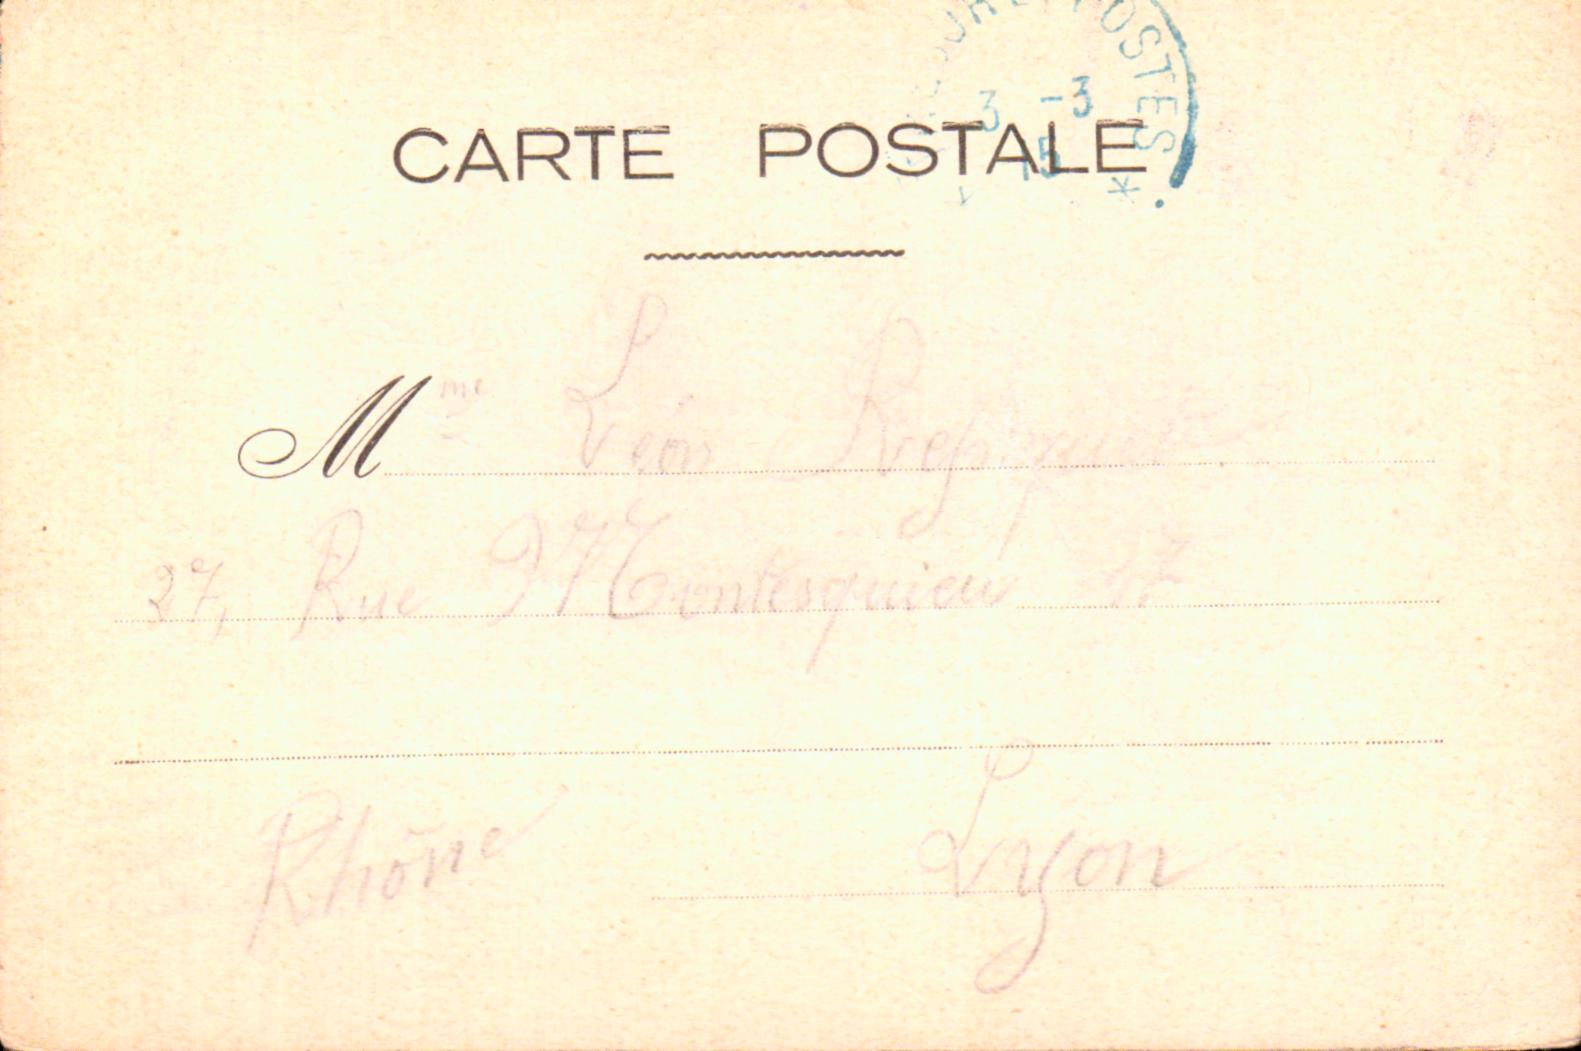 POSTES
3 -3
15
CARTE POSTALE
Mme Léon
27, Rue Montesquieu 27
Rhône Lyon